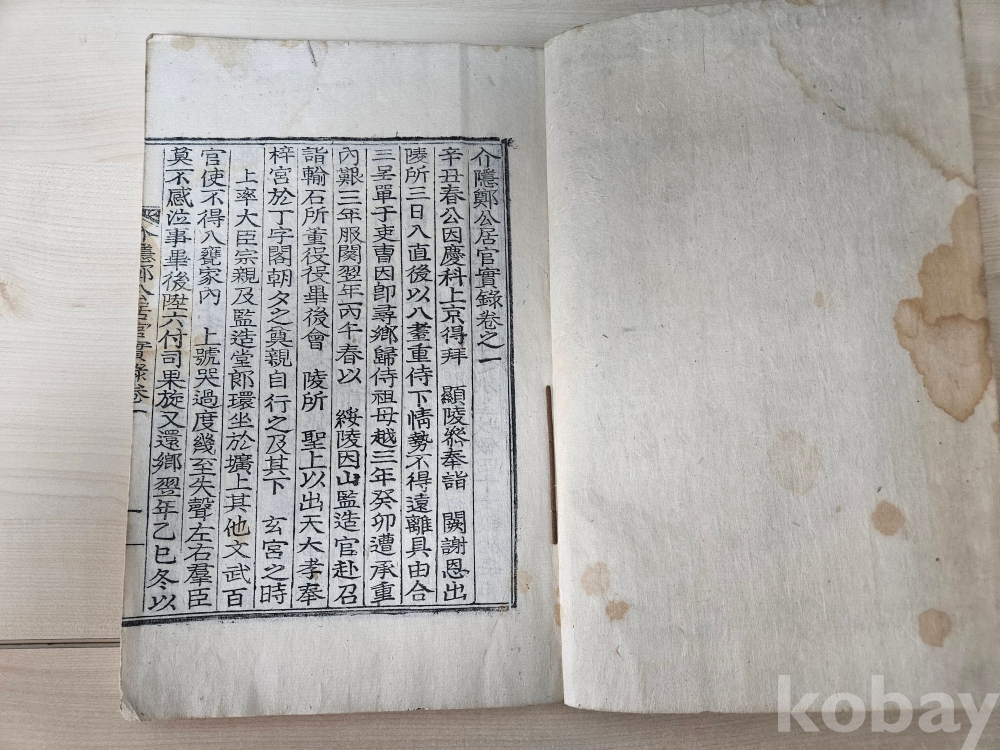 介隱鄭公居官實錄卷之一
辛丑春公因慶科上京得拜 顯陵叅奉詣 闕謝恩出
陵所三日入直後以八耋重侍下情勢不得遠離具由合
三呈單于吏曹因卽尋鄉歸侍祖母越三年癸卯遭承重
內艱三年服闋翌年丙午春以 綏陵因山監造官赴召
詣輸石所董役役畢後會 陵所 聖上以出天大孝奉
梓宮於丁字閣朝夕之奠親自行之及其下 玄宮之時
上率大臣宗親及監造堂郎環坐於壙上其他文武百
官使不得入甕家內 上號哭過度幾至失聲左右羣臣
莫不感泣事畢後陞六付司果旋又還鄉翌年乙巳冬以
介隱鄭公居官實錄卷一
一
kobay